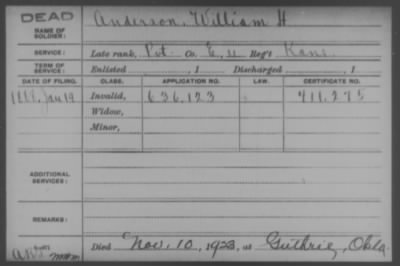 DEAD
NAME OF SOLDIER: Anderson, William H.
SERVICE: Late rank, Pvt. Co. E, 11 Reg't Kans.
TERM OF SERVICE: Enlisted , 1 Discharged , 1
DATE OF FILING. CLASS. APPLICATION NO. LAW. CERTIFICATE NO.
1888, Jan 19 Invalid, 636.123 411.275
Widow,
Minor,
ADDITIONAL SERVICES:
REMARKS:
Died Nov. 10, 1923, at Guthrie, Okla.